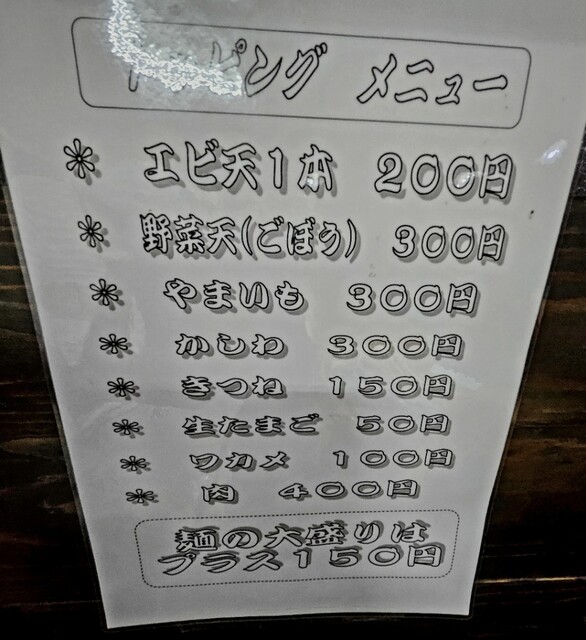 トッピング メニュー
* エビ天1本 200円
* 野菜天(ごぼう) 300円
* やまいも 300円
* かしわ 300円
* きつね 150円
* 生たまご 50円
* ワカメ 100円
* 肉 400円
麺の大盛りは
プラス150円